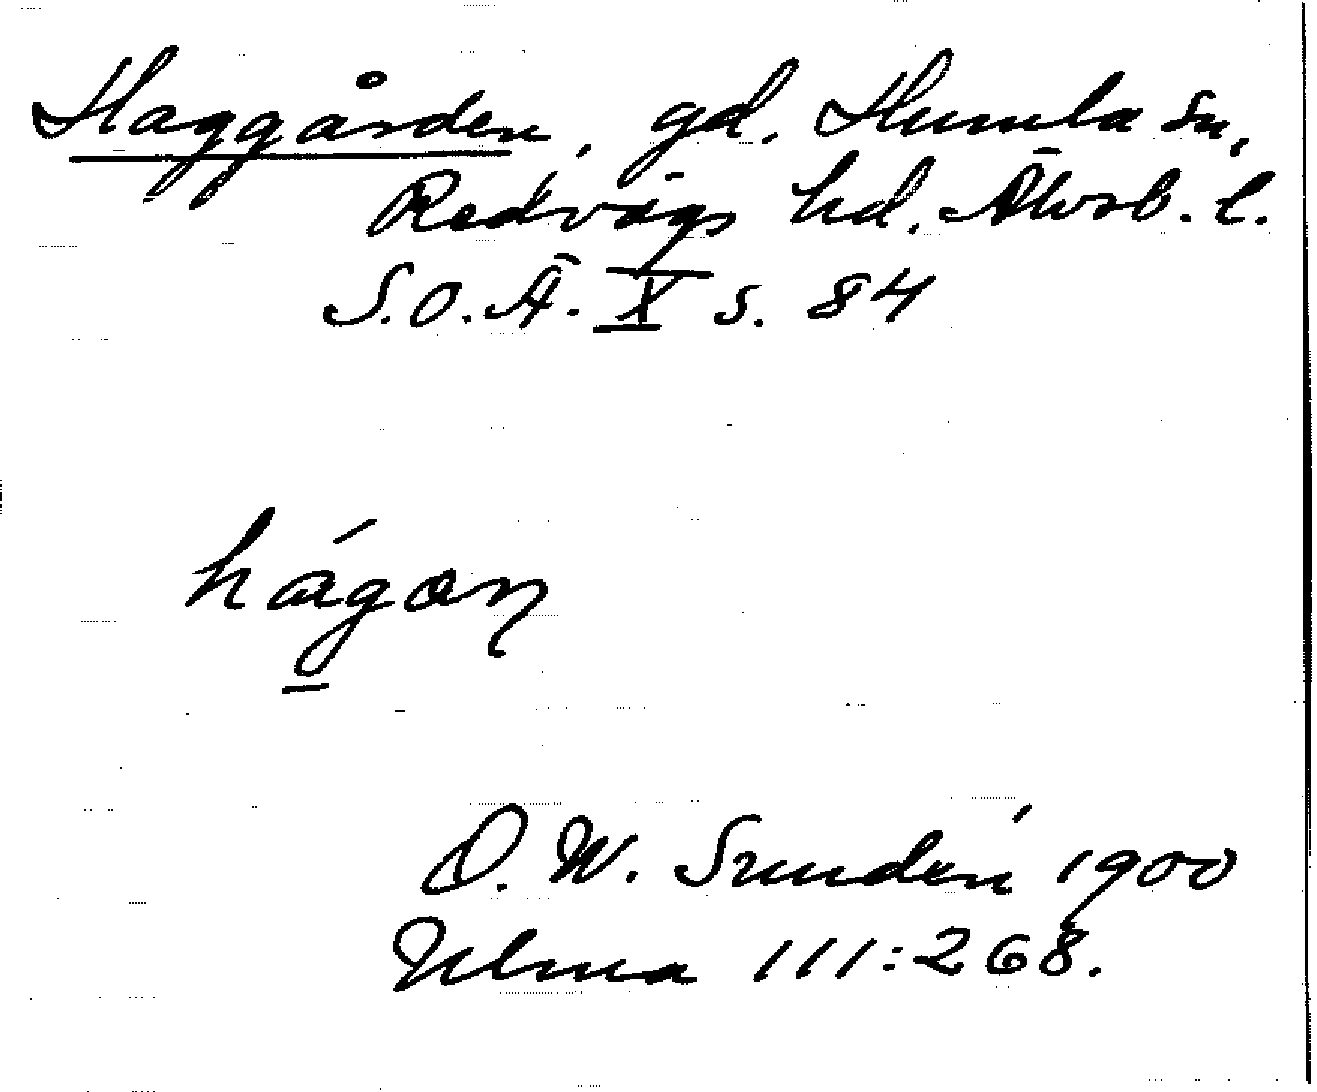 Haggården, gd. Humla sn,
Redvägs hd. Älvsb. l.
S.O.Ä. X s. 84
hágan
D. W. Sundén 1900
Ulma 111:268.